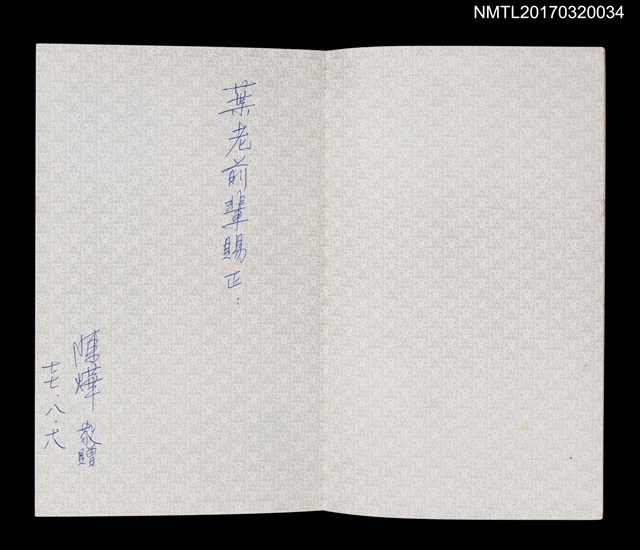 NMTL20170320034
葉老前輩賜正：
陳燁 敬贈
七七．八．十八